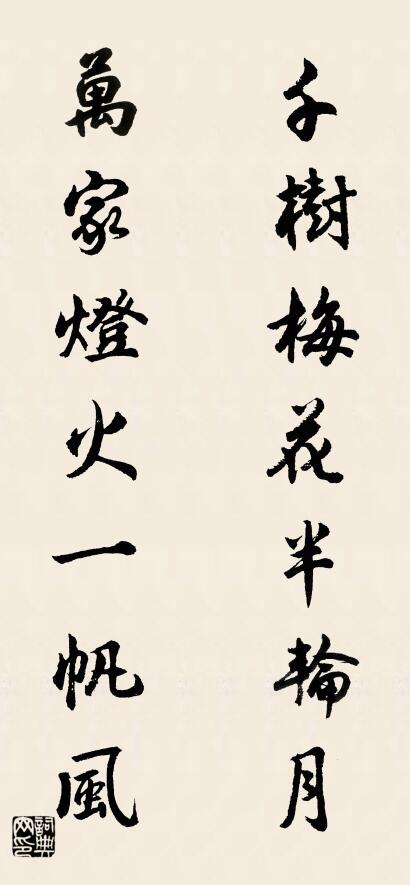 千樹梅花半輪月
萬家燈火一帆風
詞典網印